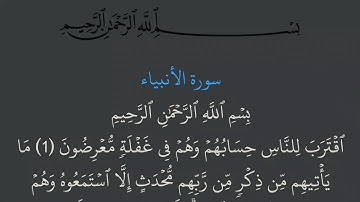 بسم الله الرحمن الرحيم
سورة الأنبياء
بِسْمِ ٱللَّهِ ٱلرَّحْمَٰنِ ٱلرَّحِيمِ
ٱقْتَرَبَ لِلنَّاسِ حِسَابُهُمْ وَهُمْ فِى غَفْلَةٍۢ مُّعْرِضُونَ (1) مَا
يَأْتِيهِم مِّن ذِكْرٍۢ مِّن رَّبِّهِم مُّحْدَثٍ إِلَّا ٱسْتَمَعُوهُ وَهُمْ